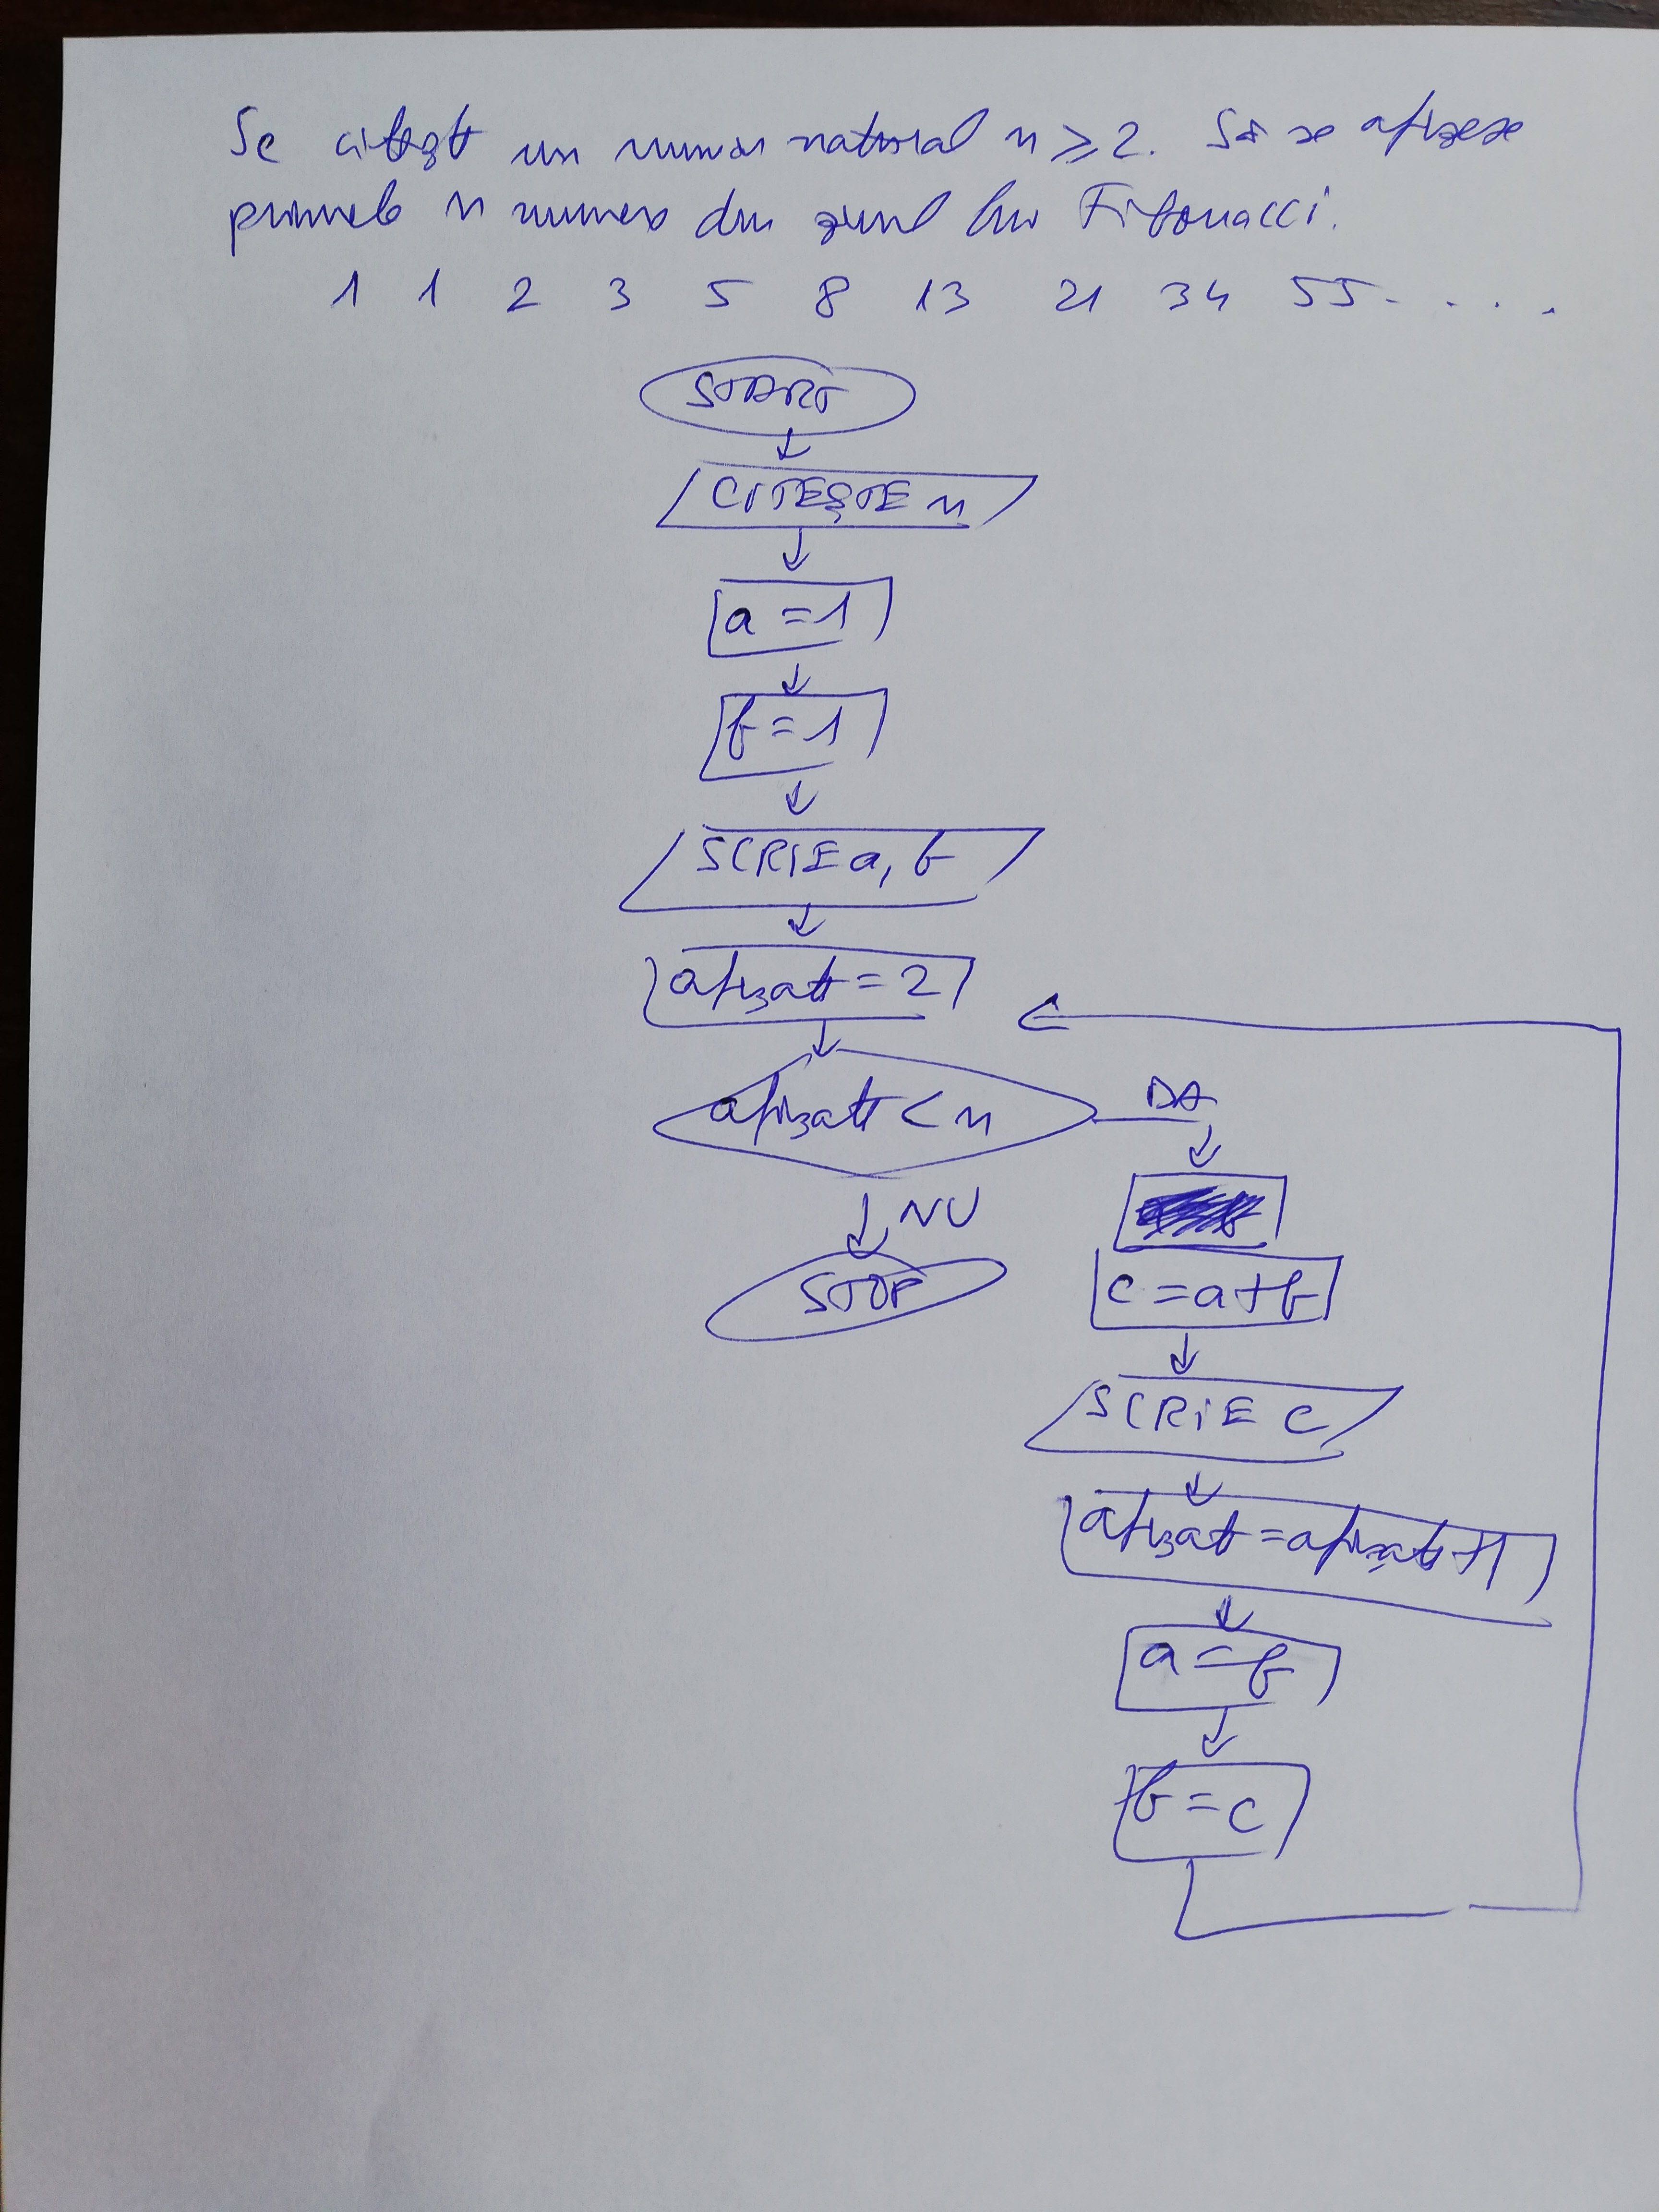 Se citește un număr natural n ≥ 2. Să se afișeze
primele n numere din șirul lui Fibonacci.
1 1 2 3 5 8 13 21 34 55 . . . .
START
CITEȘTE n
a = 1
b = 1
SCRIE a, b
afișate = 2
afișate < n
DA
NU
STOP
c = a + b
SCRIE c
afișate = afișate + 1
a = b
b = c